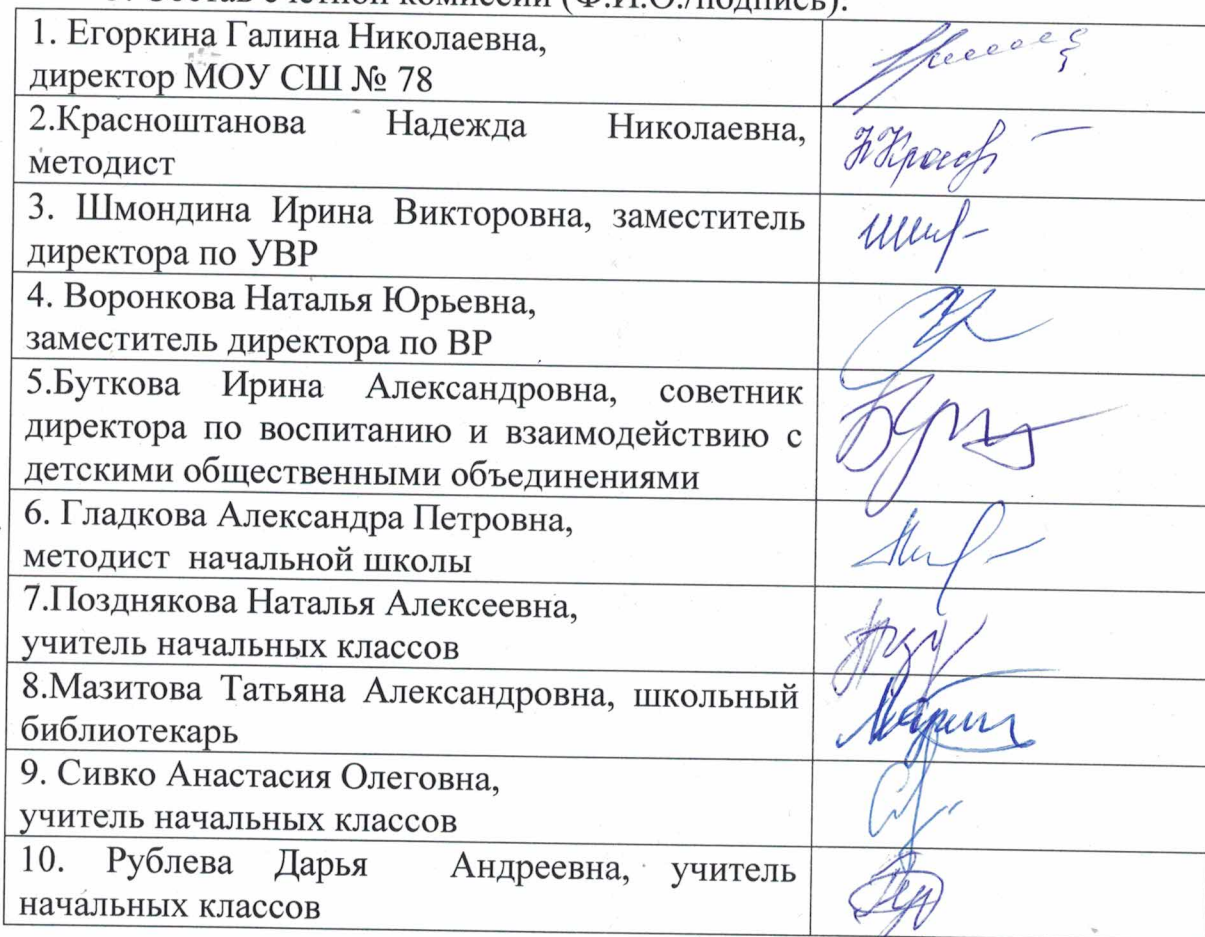 Состав счетной комиссии (Ф.И.О./подпись):
1. Егоркина Галина Николаевна,
директор МОУ СШ № 78
2.Красноштанова Надежда Николаевна,
методист
3. Шмондина Ирина Викторовна, заместитель
директора по УВР
4. Воронкова Наталья Юрьевна,
заместитель директора по ВР
5.Буткова Ирина Александровна, советник
директора по воспитанию и взаимодействию с
детскими общественными объединениями
6. Гладкова Александра Петровна,
методист начальной школы
7.Позднякова Наталья Алексеевна,
учитель начальных классов
8.Мазитова Татьяна Александровна, школьный
библиотекарь
9. Сивко Анастасия Олеговна,
учитель начальных классов
10. Рублева Дарья Андреевна, учитель
начальных классов